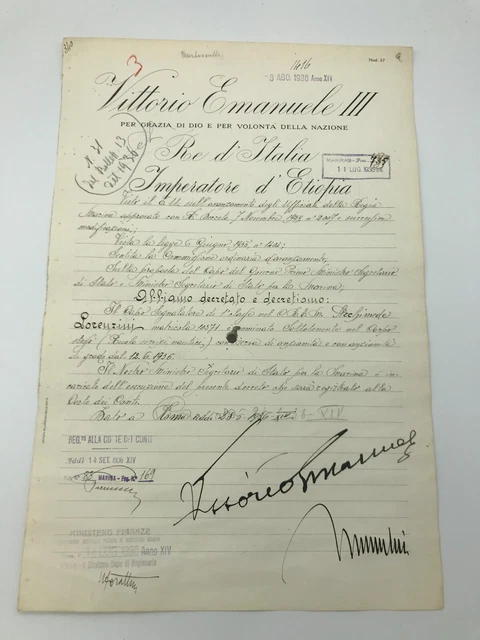 3
1416
Mod. 57
3 AGO. 1936 Anno XIV
Vittorio Emanuele III
PER GRAZIA DI DIO E PER VOLONTÀ DELLA NAZIONE
N. 31
del Bollett. 13
Set 1936
Re d'Italia
11 LUG. 1936
Imperatore d'Etiopia
Visto il T. U. sull'avanzamento degli Ufficiali della Regia
Marina approvato con R. Decreto 7 Novembre e successive
modificazioni;
Vista la legge 6 Giugno 1935, n° 1404;
Sentita la Commissione ordinaria d'avanzamento;
Sulla proposta del Capo del Governo Primo Ministro Segretario
di Stato e Ministro Segretario di Stato per la Marina;
Abbiamo decretato e decretiamo:
Il Capo Segnalatore di 1ª classe nel C.R.E.M. Archimede
Lorenzini matricola è nominato Sottotenente nel Corpo
con riserva di anzianità e con anzianità
di grado dal 12.6.1936.
Il Nostro Ministro Segretario di Stato per la Marina è in-
caricato dell'esecuzione del presente decreto che sarà registrato alla
Corte dei Conti.
Dato a Roma addì XIV
REG.TO ALLA CORTE DEI CONTI
Addì 14 SET. 1936 XIV
MARINA - Fog. N° 169
Vittorio Emanuele
Mussolini
MINISTERO FINANZE
LUGLIO 1936 Anno XIV
Il Direttore Capo di Ragioneria